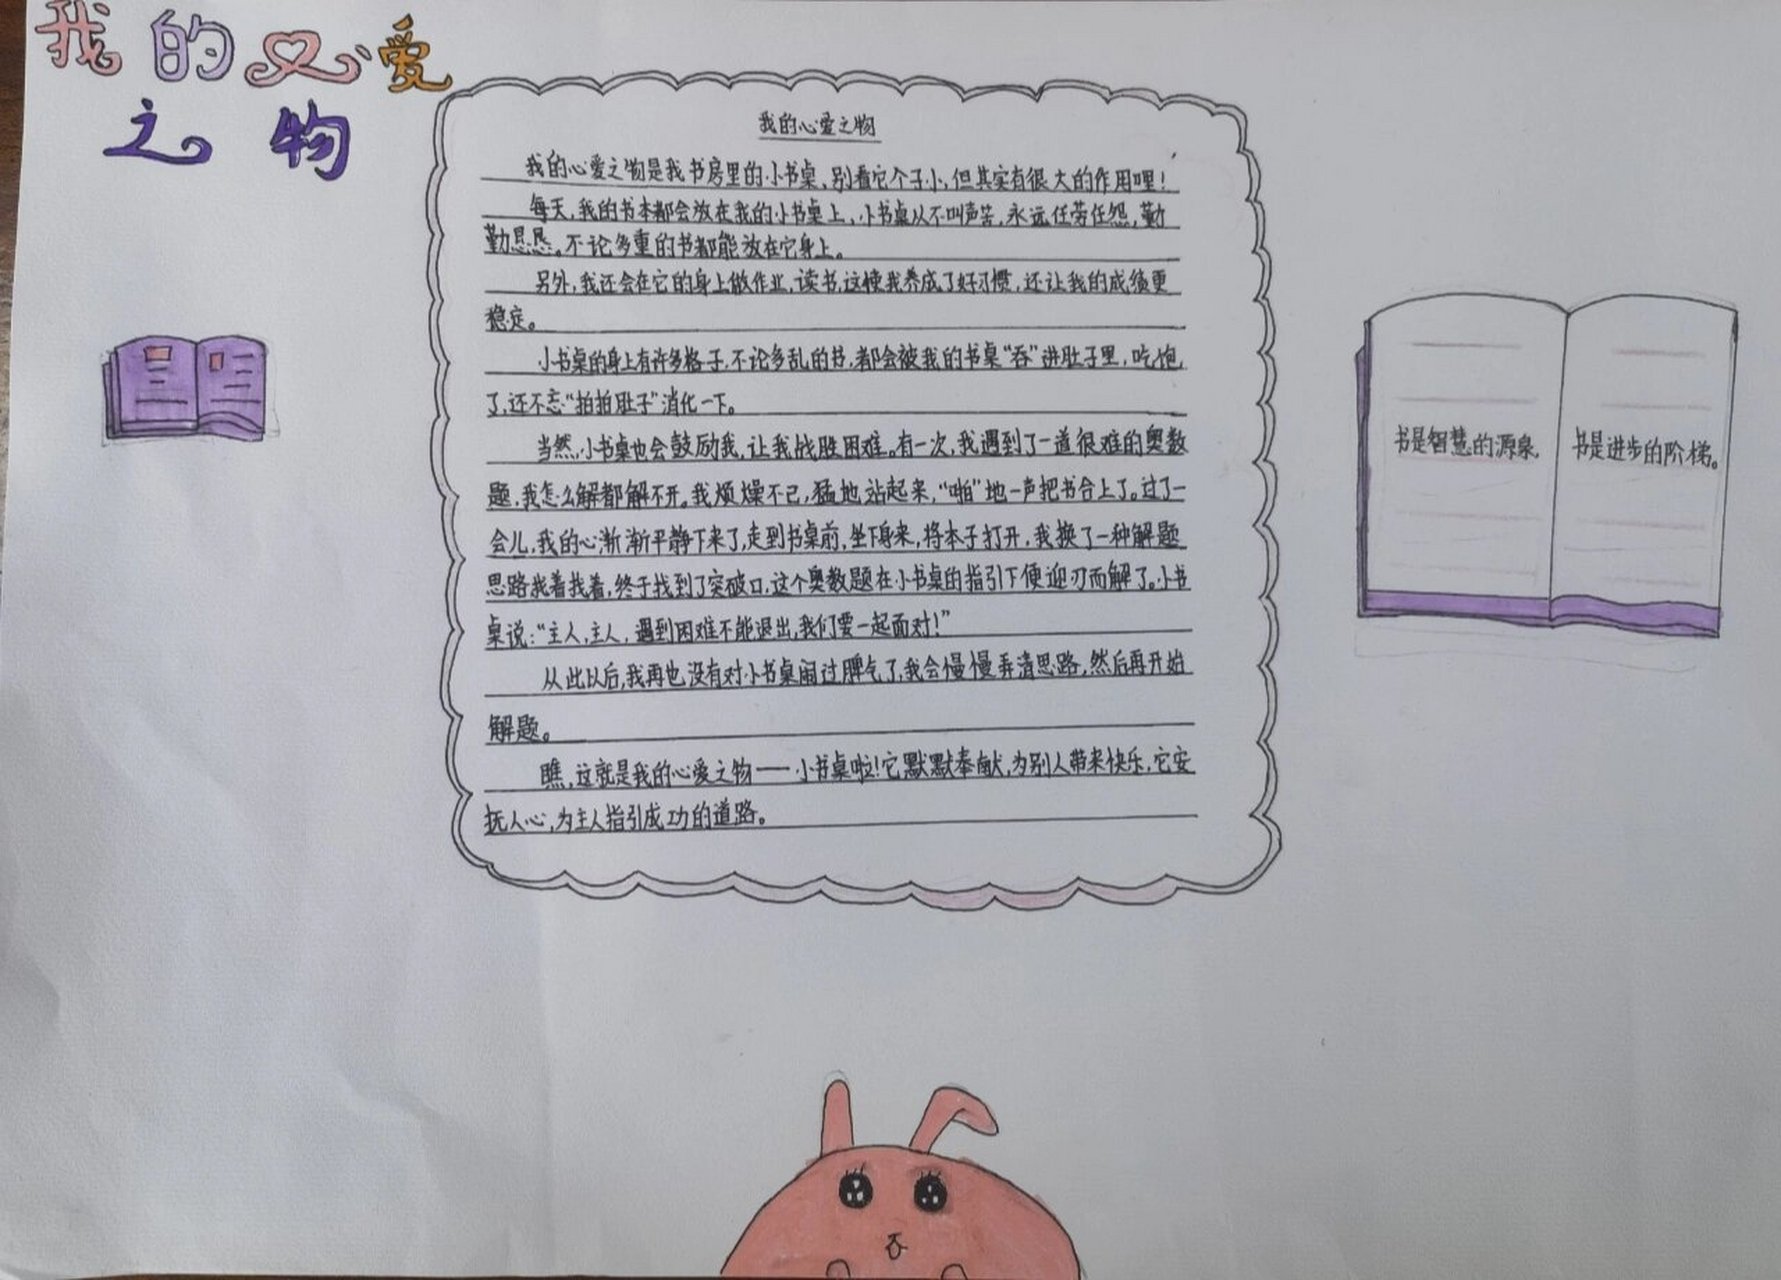 我的心爱
之物
我的心爱之物
我的心爱之物是我书房里的小书桌、别看它个子小,但其实有很大的作用哩!
每天,我的书本都会放在我的小书桌上,小书桌从不叫声苦,永远任劳任怨,勤
勤恳恳。不论多重的书都能放在它身上。
另外,我还会在它的身上做作业,读书,这使我养成了好习惯,还让我的成绩更
稳定。
小书桌的身上有许多格子,不论多乱的书,都会被我的书桌“吞”进肚子里,吃饱
了,还不忘“拍拍肚子”消化一下。
当然,小书桌也会鼓励我,让我战胜困难。有一次,我遇到了一道很难的奥数
题,我怎么解都解不开。我烦燥不已,猛地站起来,“啪”地一声把书合上了。过了一
会儿,我的心渐渐平静下来了,走到书桌前,坐下身来,将本子打开,我换了一种解题
思路找着找着,终于找到了突破口,这个奥数题在小书桌的指引下便迎刃而解了。小书
桌说:“主人,主人,遇到困难不能退出,我们要一起面对!”
从此以后,我再也没有对小书桌闹过脾气了,我会慢慢弄清思路,然后再开始
解题。
瞧,这就是我的心爱之物——小书桌啦!它默默奉献,为别人带来快乐,它安
抚人心,为主人指引成功的道路。
书是智慧的源泉,
书是进步的阶梯。